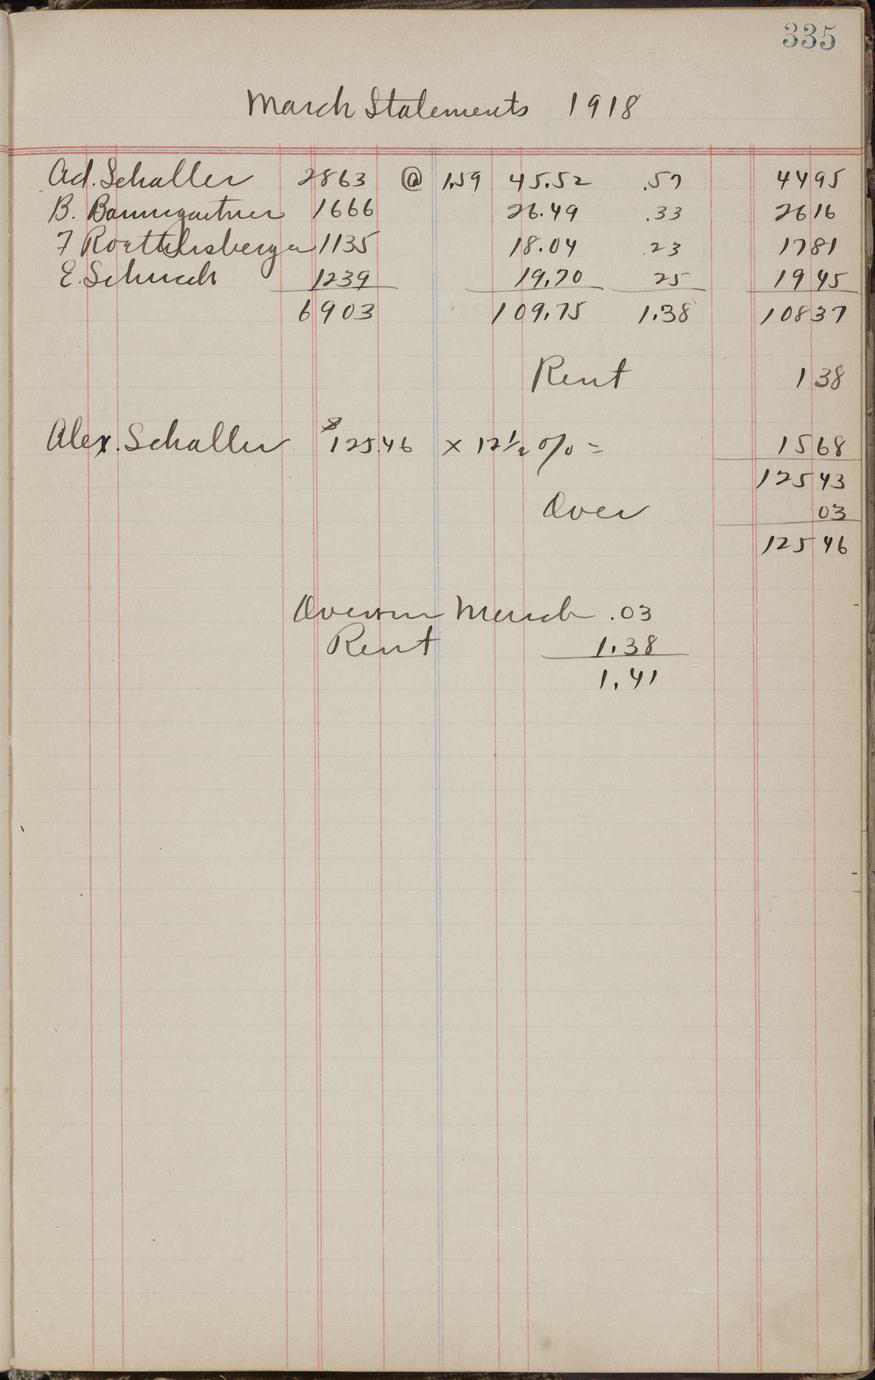 335
March Statements 1918
Ad. Schaller 2863 @ 1.59 45.52 .57 4495
B. Baumgartner 1666 26.49 .33 2616
F Roethlisberger 1135 18.04 .23 1781
E. Schuch 1239 19.70 25 1945
6903 109.75 1.38 10837
Rent 138
Alex. Schaller $125.46 x 12½ % = 1568
12543
Over 03
12546
Overrun March .03
Rent 1.38
1.41